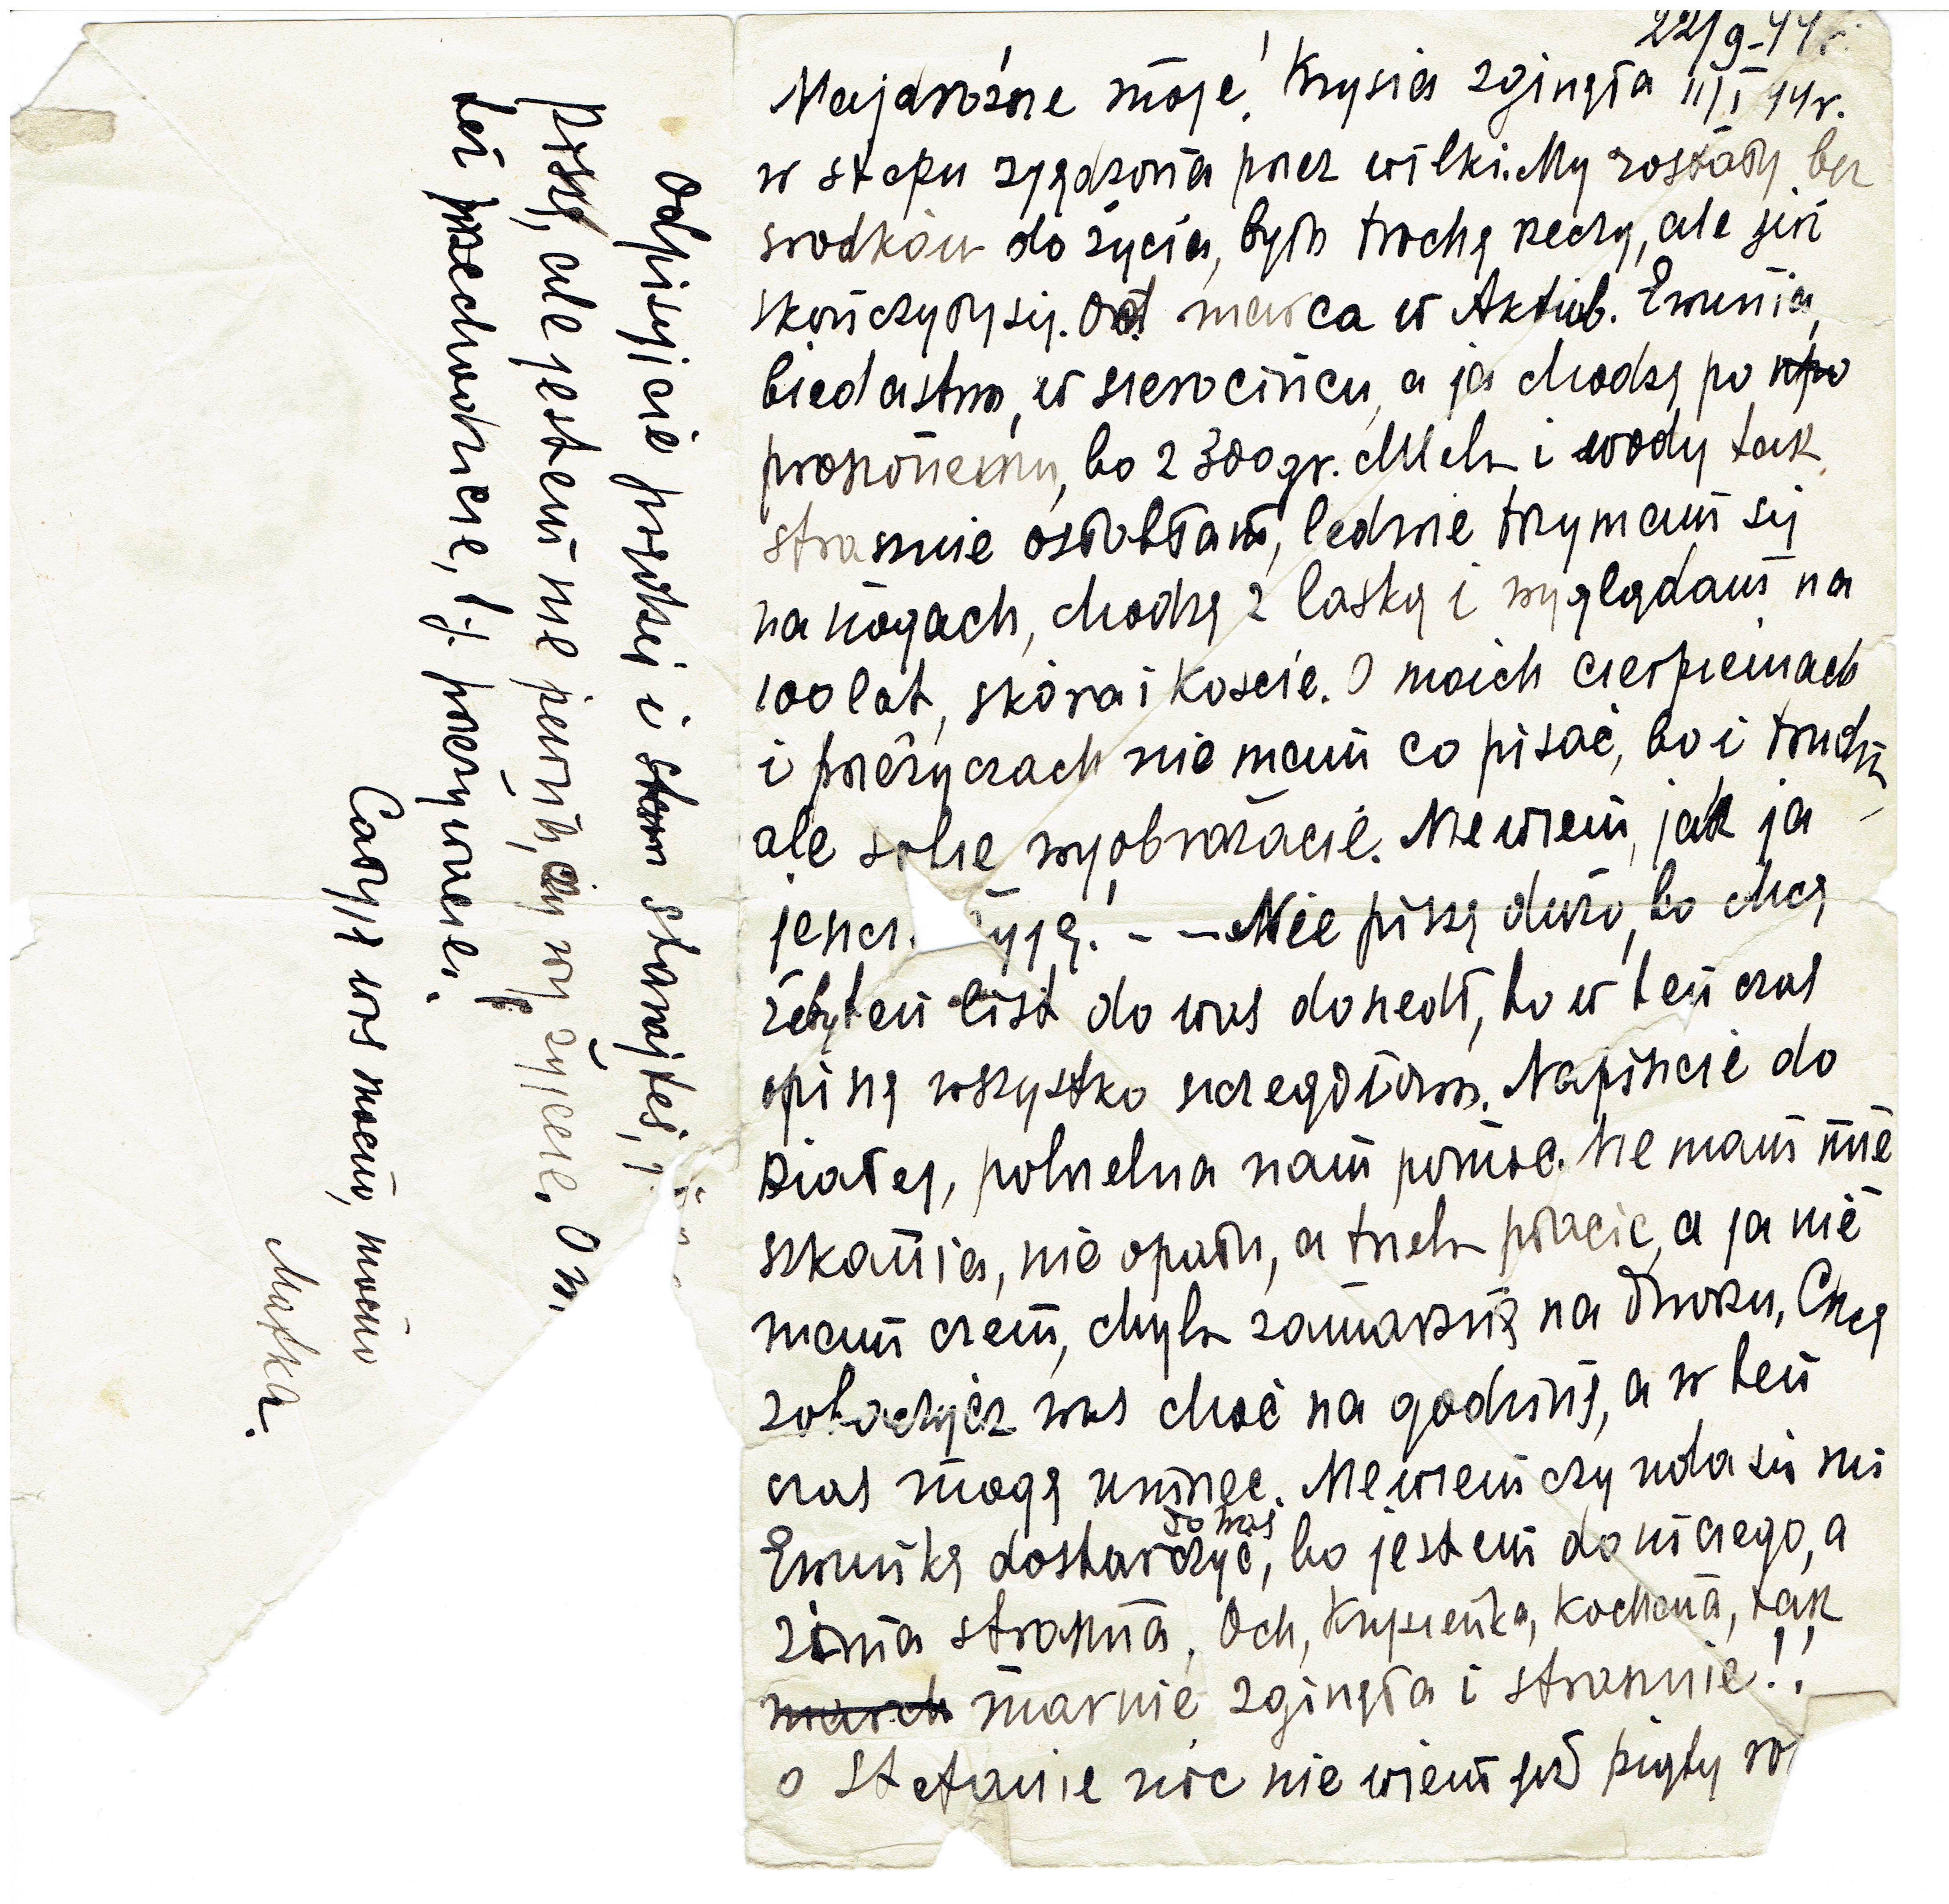 22/9-44r.
Najdroższe moje! Krysia zginęła 11/I 44r.
w stepu zjędzona przez wilki. My zostały bez
srodków do życia, było trochę rzeczy, ale już
skończyły się. Od marca w Aktiub. Ewunia,
biedastwo, w sierocińcu, a ja chodzę po
proszonemu, bo z 300 gr. chleba i wody tak
strasznie osłabłam, ledwie trzymam się
na nogach, chodzę z laską i wyglądam na
100 lat, skóra i koscie. O moich cierpieniach
i przeżyczach nie mam co pisać, bo i trudno
ale sobie wyobrażacie. Nie wiem, jak ja
jeszcz. żyję! - - Nie piszę dużo, bo chcę
żeby ten list do was doszedł, to w ten czas
opiszę wszystko szczegółowo. Napiszcie do
Białej, potrzebna nam pomoc. Nie mam mie
szkania, nie opału, a trzeba płacic, a ja nie
mam czem, chyba zamarznę na dworzu. Chcę
zobaczycz was choć na godzinę, a w ten
czas mogę umrzec. Nie wiem czy uda się mi
do was
Ewunkę dostarczyć, bo jestem do niczego, a
zima straszna. Och, Krysieńka, kochana, tak
marnie zginęła i strasznie!!
o Stefanie nic nie wiem już piąty ro
Odpisujcie prędzej i starajteś,
Piszę, ale jestem nie pewna, czy wy żyjecie. O w.
ten przechodzicie, t.j. przeżywacie.
Całuję was mocno, mocno
Matka.